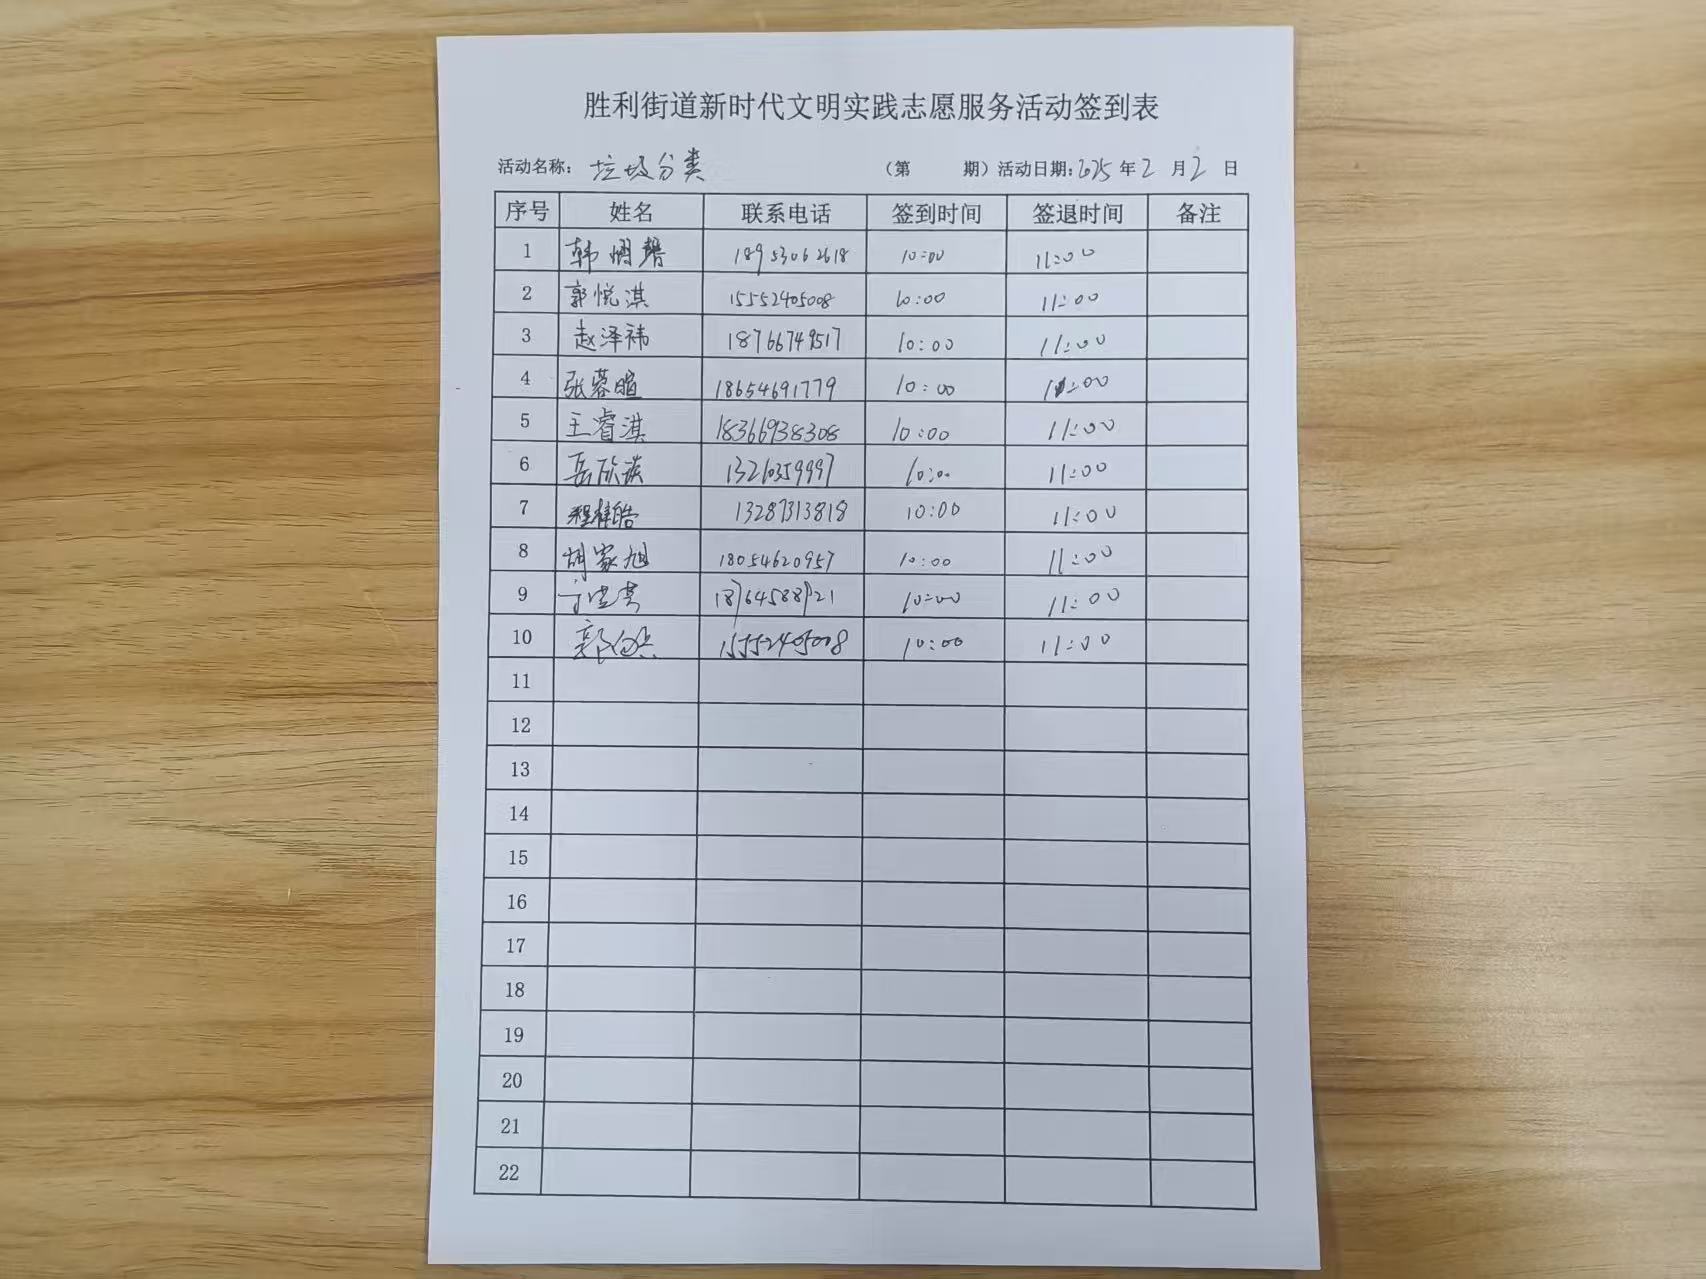 胜利街道新时代文明实践志愿服务活动签到表
活动名称: 垃圾分类 (第 期) 活动日期: 2025 年 2 月 2 日
序号 姓名 联系电话 签到时间 签退时间 备注
1 韩 18953062618 10:00 11:00
2 郭悦淇 15552405008 10:00 11:00
3 赵泽祎 18766749517 10:00 11:00
4 张蓉暄 18654691779 10:00 11:00
5 王睿淇 18366938308 10:00 11:00
6 岳欣 13210359997 10:00 11:00
7 程梓皓 13287313818 10:00 11:00
8 胡家旭 18054620957 10:00 11:00
9 10:00 11:00
10 郭 15552405008 10:00 11:00
11
12
13
14
15
16
17
18
19
20
21
22